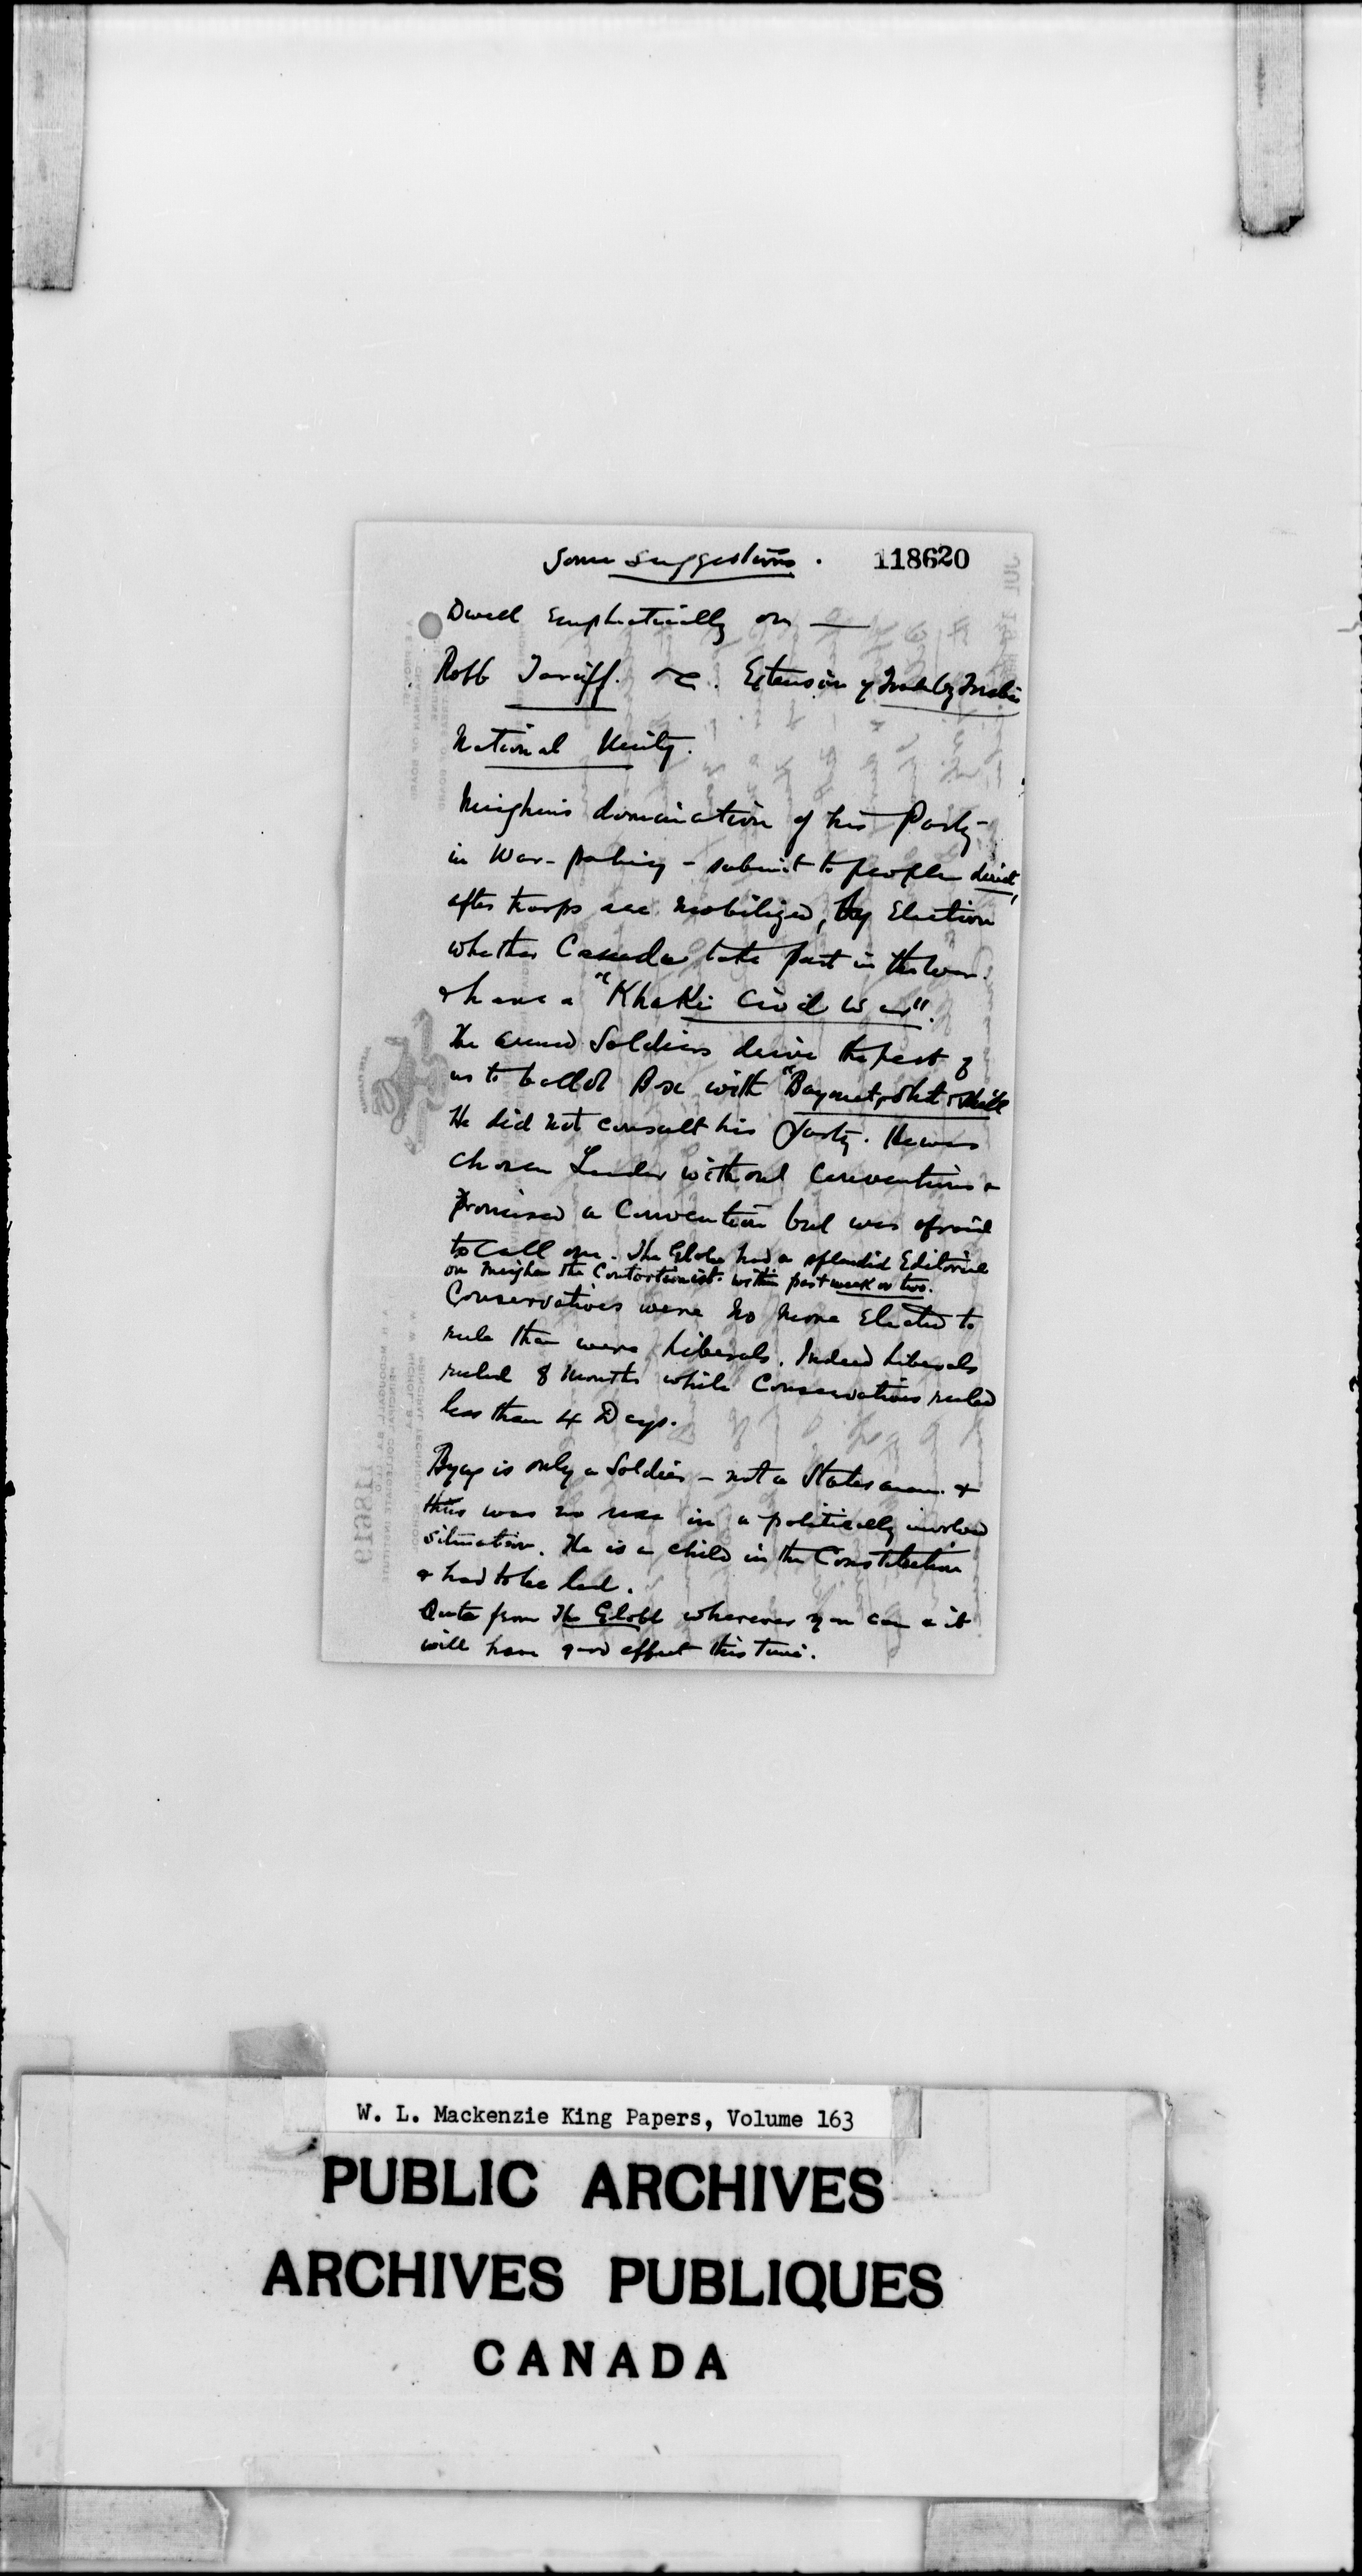 Some suggestions. 118620
Dwell Emphatically on —
Robb Tariff. Extension of Trade by Treaties
National Unity.
Meighen's domination of his Party
in War-policy - submit to people direct,
after troops are mobilized, by Election
whether Canada take part in the war.
& have a "Khaki Civil War".
The armed Soldiers drive the rest of
us to ballot Box with "Bayonet, shot & shell
He did not consult his Party. He was
chosen Leader without Conventions &
promised a Convention but was afraid
to call one. The Globe had a splendid Editorial
on Meighen the Contortionist within past week or two.
Conservatives were no more Elected to
rule than were Liberals. Indeed Liberals
ruled 8 months while Conservatives ruled
less than 4 Days.
Byng is only a Soldier - not a Statesman &
thus was no use in a politically involved
situation. He is a child in the Constitution
& had to be led.
Quote from The Globe wherever you can & it
will have good effect this time.
W. L. Mackenzie King Papers, Volume 163
PUBLIC ARCHIVES
ARCHIVES PUBLIQUES
CANADA